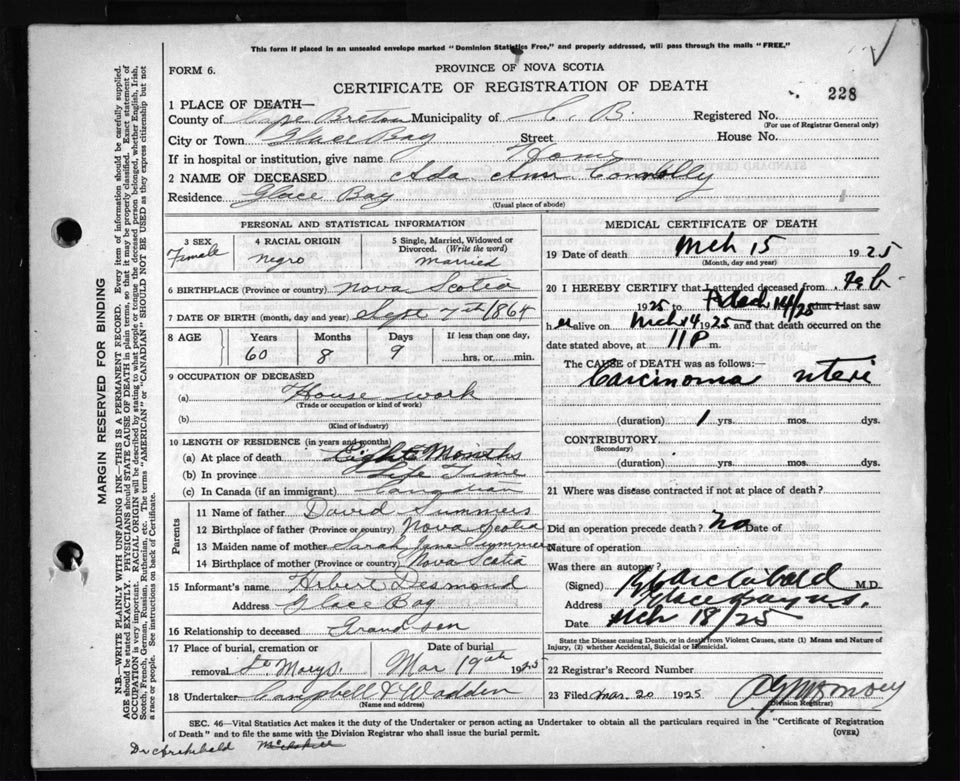 This form if placed in an unsealed envelope marked "Dominion Statistics Free," and properly addressed, will pass through the mails "FREE."
FORM 6.
PROVINCE OF NOVA SCOTIA
CERTIFICATE OF REGISTRATION OF DEATH
228
1 PLACE OF DEATH—
County of Cape Breton Municipality of C. B. Registered No.
(For use of Registrar General only)
City or Town Glace Bay Street House No.
If in hospital or institution, give name Home
2 NAME OF DECEASED Ada Ann Connolly
Residence Glace Bay
(Usual place of abode)
PERSONAL AND STATISTICAL INFORMATION
3 SEX 4 RACIAL ORIGIN 5 Single, Married, Widowed or Divorced. (Write the word)
Female negro married
6 BIRTHPLACE (Province or country) Nova Scotia
7 DATE OF BIRTH (month, day and year) Sept 7th 1864
8 AGE Years Months Days If less than one day,
60 8 9 hrs. or min.
9 OCCUPATION OF DECEASED
(a) House work
(Trade or occupation or kind of work)
(b)
(Kind of industry)
10 LENGTH OF RESIDENCE (in years and months)
(a) At place of death Eight Months
(b) In province Life Time
(c) In Canada (if an immigrant) Canadian
Parents
11 Name of father David Summers
12 Birthplace of father (Province or country) Nova Scotia
13 Maiden name of mother Sarah Jane Symmers
14 Birthplace of mother (Province or country) Nova Scotia
15 Informant's name Hibert Desmond
Address Glace Bay
16 Relationship to deceased Grand son
17 Place of burial, cremation or removal Date of burial
St Marys. Mar 19th 1925
18 Undertaker Campbell & Wadden
(Name and address)
MEDICAL CERTIFICATE OF DEATH
19 Date of death Mch 15 1925
(Month, day and year)
20 I HEREBY CERTIFY that I attended deceased from Feb
1925 to 14/25 that I last saw
her alive on Mch 14 1925 and that death occurred on the
date stated above, at 11 P m.
The CAUSE of DEATH was as follows:—
Carcinoma uteri
(duration) 1 yrs. mos. dys.
CONTRIBUTORY.
(Secondary)
(duration) yrs. mos. dys.
21 Where was disease contracted if not at place of death?
Did an operation precede death? No Date of
Nature of operation
Was there an autopsy?
(Signed) Archibald M.D.
Address Glace Bay N.S.
Date Mch 18/25
State the Disease causing Death, or in death from Violent Causes, state (1) Means and Nature of Injury, (2) whether Accidental, Suicidal or Homicidal.
22 Registrar's Record Number
23 Filed Mar. 20 1925
Division Registrar
SEC. 46—Vital Statistics Act makes it the duty of the Undertaker or person acting as Undertaker to obtain all the particulars required in the "Certificate of Registration
of Death" and to file the same with the Division Registrar who shall issue the burial permit.
(OVER)
Dr Archibald
MARGIN RESERVED FOR BINDING
N.B.—WRITE PLAINLY WITH UNFADING INK—THIS IS A PERMANENT RECORD. Every item of information should be carefully supplied.
AGE should be stated EXACTLY. PHYSICIANS should STATE CAUSE OF DEATH in plain terms, so that it may be properly classified. Exact statement of
OCCUPATION is very important. RACIAL ORIGIN will be described by stating to what people or tongue the deceased person belonged, whether English, Irish,
Scotch, French, German, Russian, Ruthenian, etc. The terms "AMERICAN" or "CANADIAN" SHOULD NOT BE USED as they express citizenship but not
a race or people. See instructions on back of Certificate.